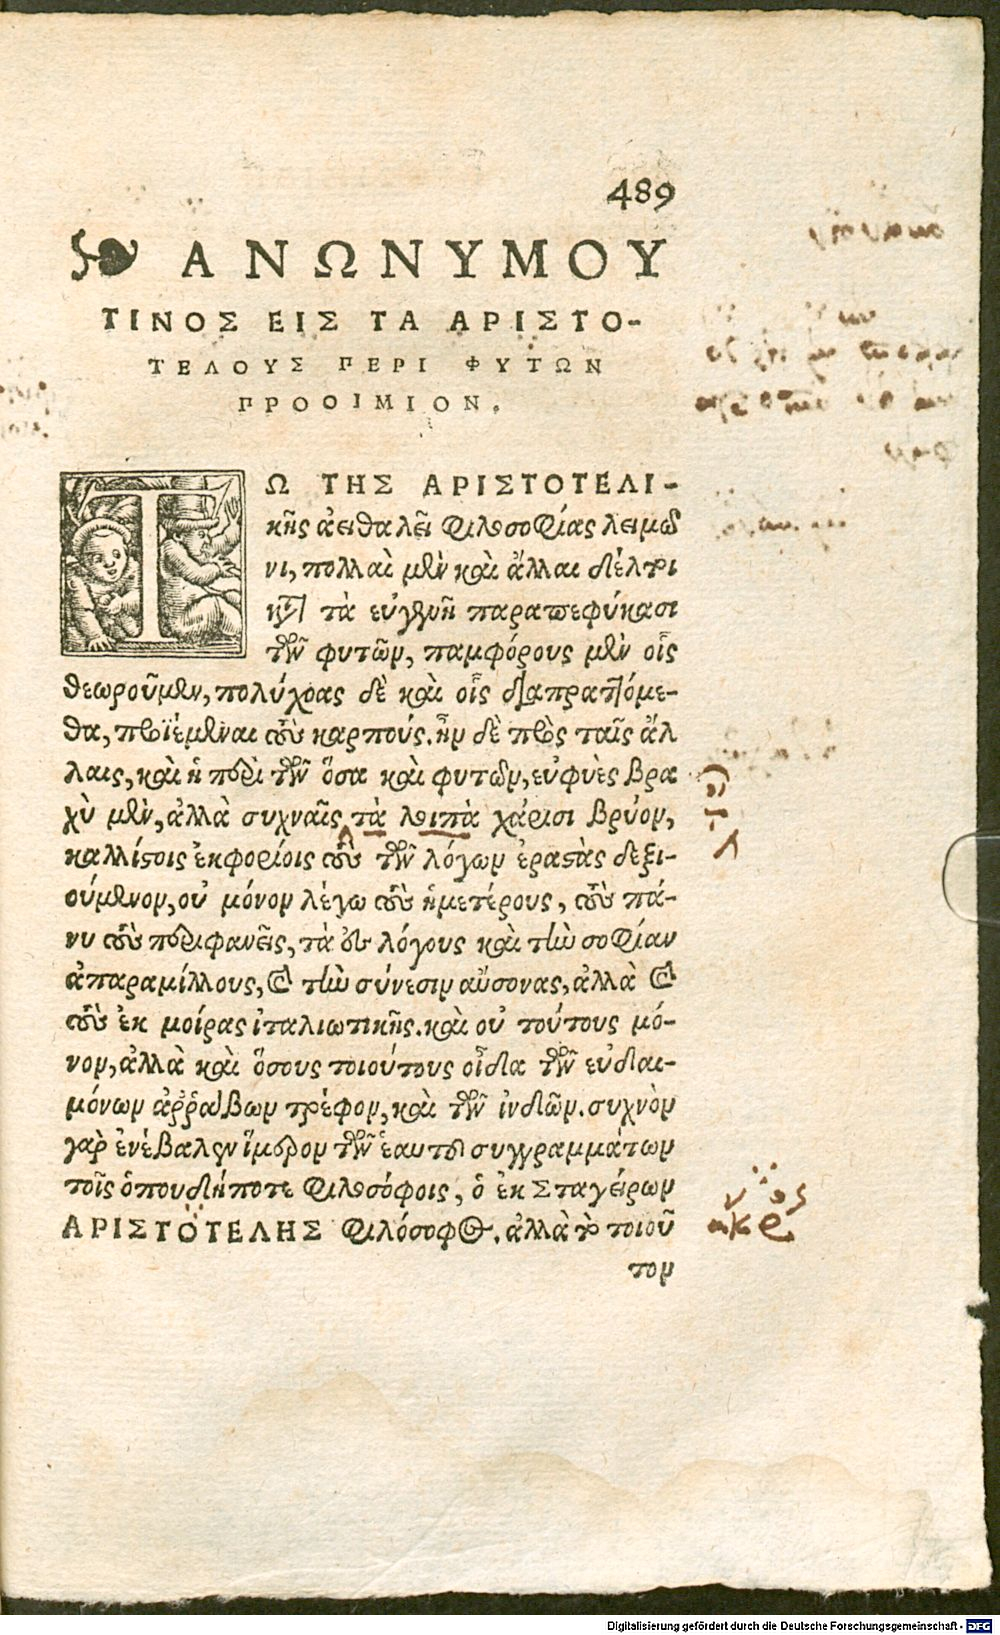 489
ΑΝΩΝΥΜΟΥ
ΤΙΝΟΣ ΕΙΣ ΤΑ ΑΡΙΣΤΟ-
ΤΕΛΟΥΣ ΠΕΡΙ ΦΥΤΩΝ
ΠΡΟΟΙΜΙΟΝ.
ΤΩ ΤΗΣ ΑΡΙΣΤΟΤΕΛΙ-
κῆς ἀειθαλεῖ φιλοσοφίας λειμῶ
νι, πολλαὶ μὲν καὶ ἄλλαι δέλτοι
κỳ τὰ εὐγενῆ παραπεφύκασι
τῶν φυτῶν, παμφόρους μὲν οἷς
θεωροῦμεν, πολύχοας δὲ καὶ οἷς διαπραττόμε-
θα, προϊέμεναι τοὺς καρπούς. ἦν δὲ πρὸς ταῖς ἄλ
λαις, καὶ ἡ περὶ τῶν ὅσα καὶ φυτῶν, εὐφυὲς βρα
χὺ μὲν, ἀλλὰ συχναῖς τὰ λοιπὰ χάρισι βρύον,
καλλίστοις ἐκφορίοις τοὺς τῶν λόγων ἐραστὰς δεξι-
ούμενον, οὐ μόνον λέγω τοὺς ἡμετέρους, τοὺς πά-
νυ τοὺς περιφανεῖς, τὰ εἰς λόγους καὶ τὴν σοφίαν
ἀπαραμίλλους, καὶ τὴν σύνεσιν αὔσονας, ἀλλὰ καὶ
τοὺς ἐκ μοίρας ἰταλιωτικῆς. καὶ οὐ τούτους μό-
νον, ἀλλὰ καὶ ὅσους τοιούτους οἶδα τῶν εὐδαι-
μόνων ἀῤῥάβων τρέφον, καὶ τῶν ἰνδῶν. συχνὸν
γὰρ ἐνέβαλεν ἵμερον τῶν ἑαυτοῦ συγγραμμάτων
τοῖς ὁπουδήποτε φιλοσόφοις, ὁ ἐκ Σταγείρων
ΑΡΙΣΤΟΤΕΛΗΣ φιλόσοφος. ἀλλὰ τὸ τοιοῦ
τον
Digitalisierung gefördert durch die Deutsche Forschungsgemeinschaft - DFG